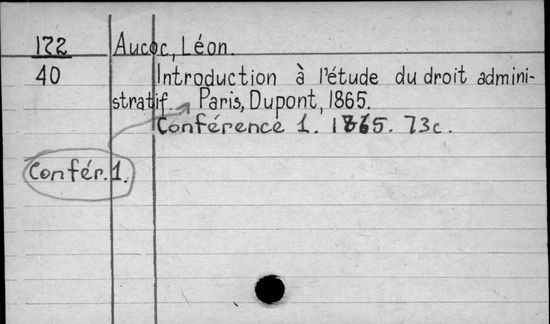 172 Aucoc, Léon.
40 Introduction à l'étude du droit admini-
stratif. Paris, Dupont, 1865.
Conférence 1. 1865. 73c.
Confér. 1.